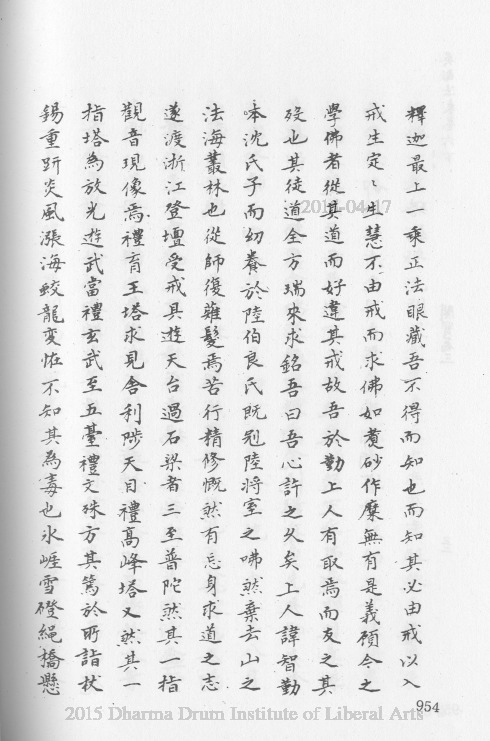 釋迦最上一乘正法眼藏吾不得而知也而知其必由戒以入
戒生定〻生慧不由戒而求佛如煑砂作糜無有是義顧今之
學佛者從其道而好違其戒故吾於勤上人有取焉而友之其
歿也其徒道全方瑞來求銘吾曰吾心許之久矣上人諱智勤
本沈氏子而幼養於陸伯良氏既冠陸將室之咈然棄去山之
法海叢林也從師復薙髮焉苦行精修慨然有忘身求道之志
遂渡浙江登壇受戒具遊天台過石梁者三至普陀然其一指
觀音現像焉禮育王塔求見舍利陟天目禮高峰塔又然其一
指塔為放光遊武當禮玄武至五臺禮文殊方其篤於所詣杖
錫重趼炎風漲海蛟龍變怪不知其為毒也氷崕雪磴繩橋懸
954
2015-04-17
2015 Dharma Drum Institute of Liberal Arts